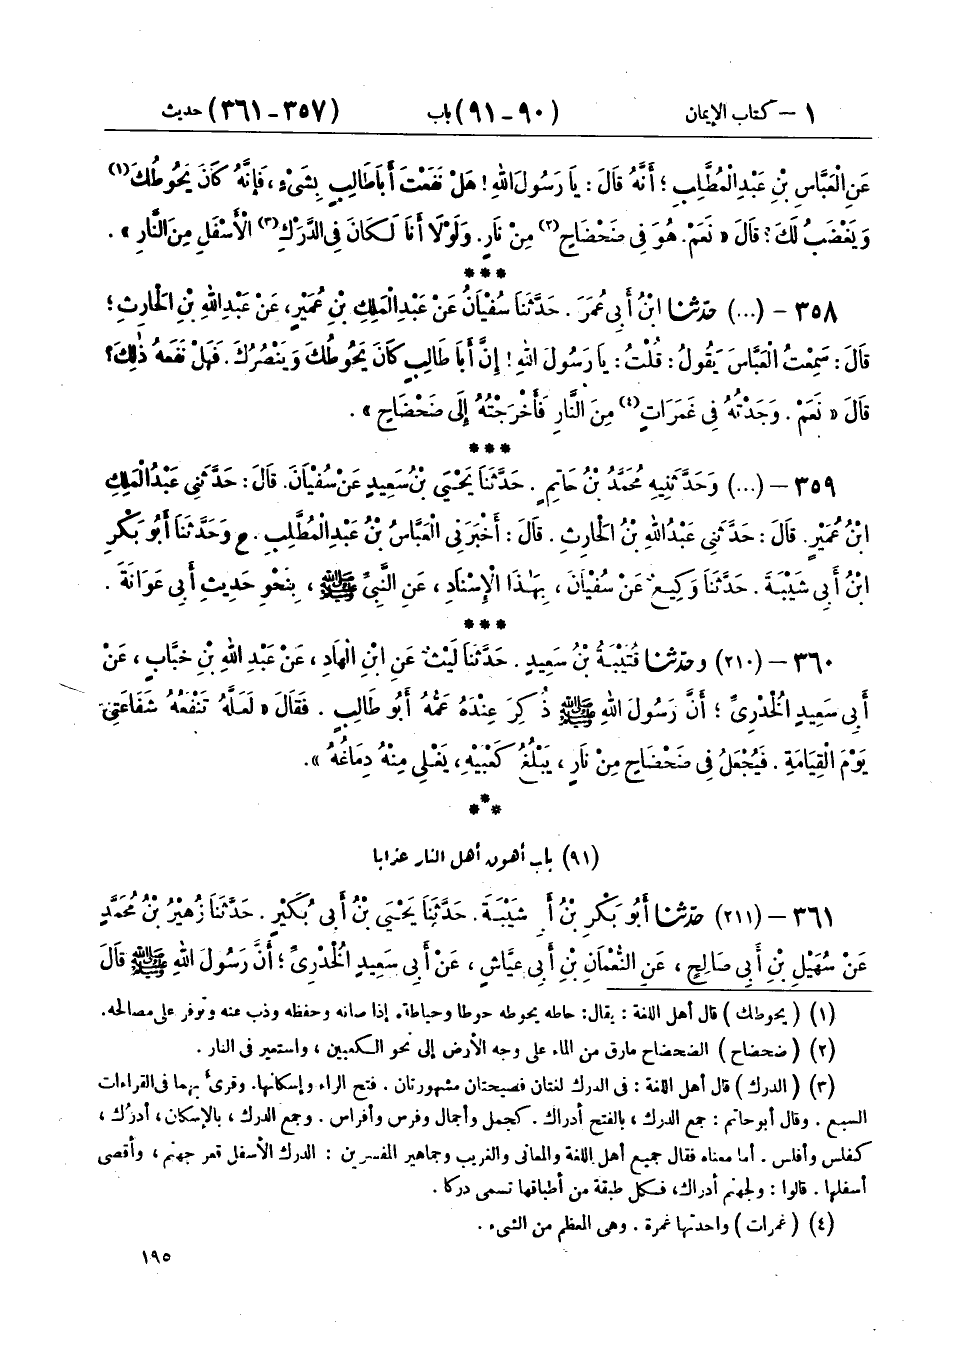 ١ – كتاب الإيمان (٩٠ – ٩١) باب (٣٥٧ – ٣٦١) حديث
عَنِ الْعَبَّاسِ بْنِ عَبْدِ الْمُطَّلِبِ ؛ أَنَّهُ قَالَ : يَا رَسُولَ اللهِ ! هَلْ نَفَعْتَ أَبَا طَالِبٍ بِشَيْءٍ ، فَإِنَّهُ كَانَ يَحُوطُكَ(١)
وَيَغْضَبُ لَكَ ؟ قَالَ « نَعَمْ . هُوَ فِي ضَحْضَاحٍ(٢) مِنْ نَارٍ . وَلَوْلَا أَنَا لَكَانَ فِي الدَّرْكِ(٣) الْأَسْفَلِ مِنَ النَّارِ » .
***
٣٥٨ – (...) حَدَّثَنَا ابْنُ أَبِي عُمَرَ . حَدَّثَنَا سُفْيَانُ عَنْ عَبْدِ الْمَلِكِ بْنِ عُمَيْرٍ ، عَنْ عَبْدِ اللهِ بْنِ الْحَارِثِ ؛
قَالَ : سَمِعْتُ الْعَبَّاسَ يَقُولُ : قُلْتُ : يَا رَسُولَ اللهِ ! إِنَّ أَبَا طَالِبٍ كَانَ يَحُوطُكَ وَيَنْصُرُكَ . فَهَلْ نَفَعَهُ ذٰلِكَ ؟
قَالَ « نَعَمْ . وَجَدْتُهُ فِي غَمَرَاتٍ(٤) مِنَ النَّارِ فَأَخْرَجْتُهُ إِلَى ضَحْضَاحٍ » .
***
٣٥٩ – (...) وَحَدَّثَنِيهِ مُحَمَّدُ بْنُ حَاتِمٍ . حَدَّثَنَا يَحْيَى بْنُ سَعِيدٍ عَنْ سُفْيَانَ . قَالَ : حَدَّثَنِي عَبْدُ الْمَلِكِ
ابْنُ عُمَيْرٍ . قَالَ : حَدَّثَنِي عَبْدُ اللهِ بْنُ الْحَارِثِ . قَالَ : أَخْبَرَنِي الْعَبَّاسُ بْنُ عَبْدِ الْمُطَّلِبِ . ح وَحَدَّثَنَا أَبُو بَكْرِ
ابْنُ أَبِي شَيْبَةَ . حَدَّثَنَا وَكِيعٌ عَنْ سُفْيَانَ ، بِهٰذَا الْإِسْنَادِ ، عَنِ النَّبِيِّ ﷺ ، بِنَحْوِ حَدِيثِ أَبِي عَوَانَةَ .
***
٣٦٠ – (٢١٠) وحَدَّثَنَا قُتَيْبَةُ بْنُ سَعِيدٍ . حَدَّثَنَا لَيْثٌ عَنِ ابْنِ الْهَادِ ، عَنْ عَبْدِ اللهِ بْنِ خَبَّابٍ ، عَنْ
أَبِي سَعِيدٍ الْخُدْرِيِّ ؛ أَنَّ رَسُولَ اللهِ ﷺ ذُكِرَ عِنْدَهُ عَمُّهُ أَبُو طَالِبٍ . فَقَالَ « لَعَلَّهُ تَنْفَعُهُ شَفَاعَتِي
يَوْمَ الْقِيَامَةِ . فَيُجْعَلُ فِي ضَحْضَاحٍ مِنْ نَارٍ ، يَبْلُغُ كَعْبَيْهِ ، يَغْلِي مِنْهُ دِمَاغُهُ » .
***
(٩١) باب أهون أهل النار عذابا
٣٦١ – (٢١١) حَدَّثَنَا أَبُو بَكْرِ بْنُ أَبِي شَيْبَةَ . حَدَّثَنَا يَحْيَى بْنُ أَبِي بُكَيْرٍ . حَدَّثَنَا زُهَيْرُ بْنُ مُحَمَّدٍ
عَنْ سُهَيْلِ بْنِ أَبِي صَالِحٍ ، عَنِ النُّعْمَانِ بْنِ أَبِي عَيَّاشٍ ، عَنْ أَبِي سَعِيدٍ الْخُدْرِيِّ ؛ أَنَّ رَسُولَ اللهِ ﷺ قَالَ
(١) ( يحوطك ) قال أهل اللغة : يقال : حاطه يحوطه حوطا وحياطة . إذا صانه وحفظه وذب عنه وتوفر على مصالحه .
(٢) ( ضحضاح ) الضحضاح مارق من الماء على وجه الأرض إلى نحو الكعبين ، واستعير فى النار .
(٣) ( الدرك ) قال أهل اللغة : فى الدرك لغتان فصيحتان مشهورتان . فتح الراء وإسكانها . وقرئ بهما فى القراءات
السبع . وقال أبو حاتم : جمع الدرك ، بالفتح أدراك . كجمل وأجمال وفرس وأفراس . وجمع الدرك ، بالإسكان ، أدرُك ،
كفلس وأفلس . أما معناه فقال جميع أهل اللغة والمعانى والغريب وجماهير المفسرين : الدرك الأسفل قعر جهنم ، وأقصى
أسفلها . قالوا : ولجهنم أدراك ، فكل طبقة من أطباقها تسمى دركا .
(٤) ( غمرات ) واحدتها غمرة . وهى المعظم من الشىء .
١٩٥